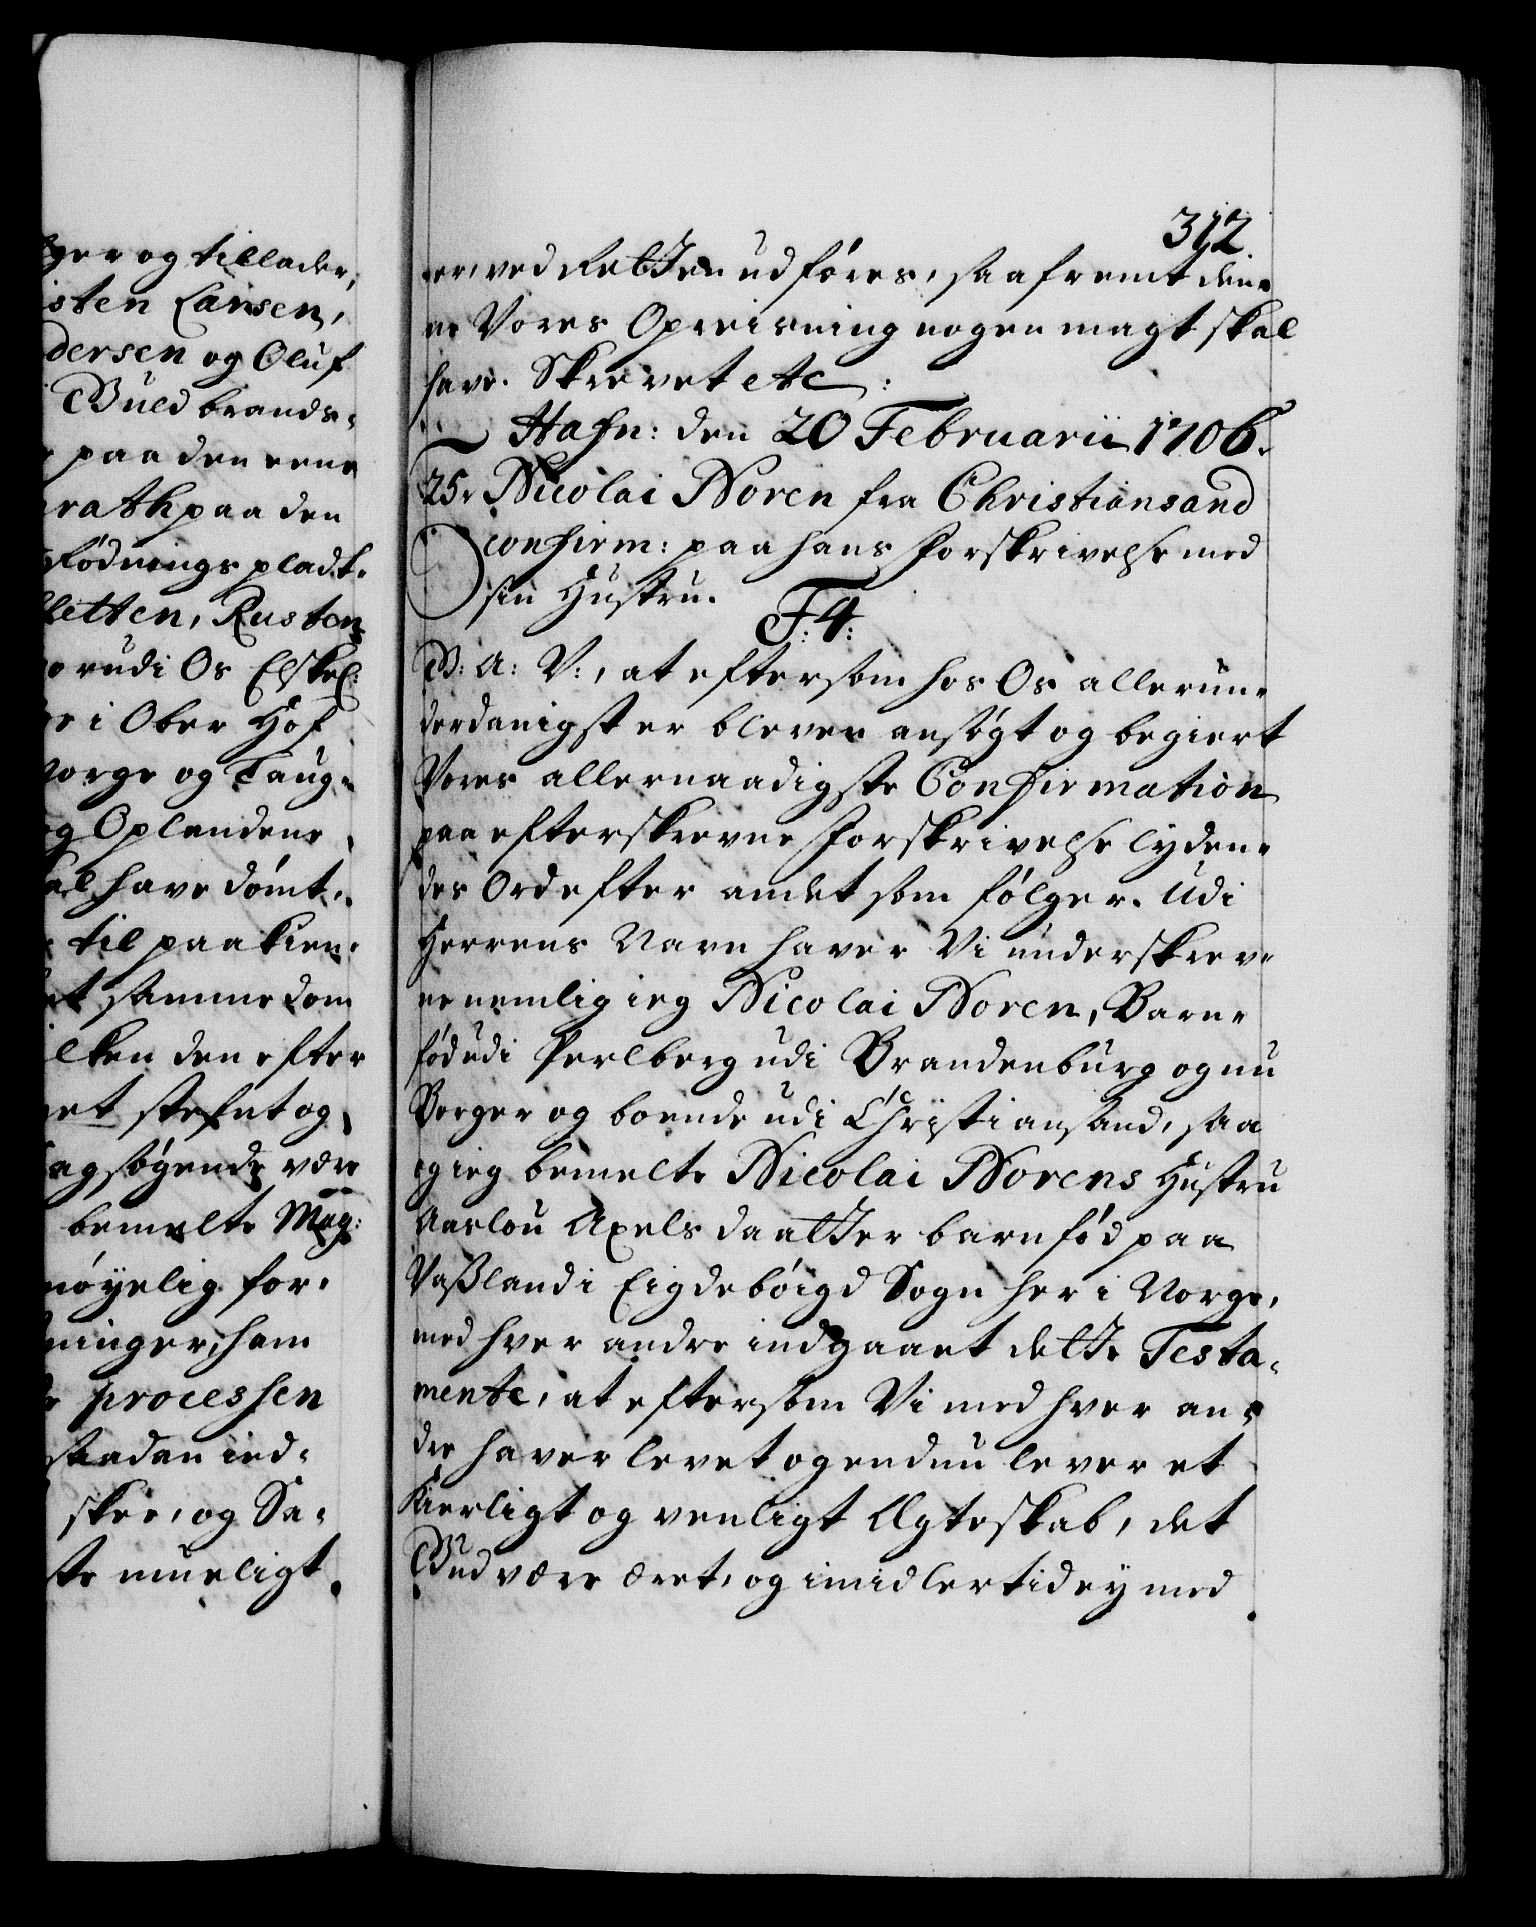 ger og tillader,
isten Larsen,
dersen og Oluf
Guldbrands-
paa den eene
rath paa den
flødnings pladt-
letten, Rusten
rudi Os Elskel:
i Ober Hof
Norge og Laug-
og Oplandene
al have dømt,
til paakien-
et samme dom
ilken den efter
et stefnt og
agsøgende være
bemelte Mag:
nøyelig for-
ninger, ham
processen
saadan ind-
skee, og Sa-
ste mueligt.
312
er ved Retten udføres, saafremt den-
ne Vores Opreisning nogen magt skal
have. Skrevet etc:
Hafn: den 20 Februarii 1706.
25. Nicolai Noren fra Christiansand
confirm: paa hans Forskrivelse med
sin Hustru.
F: 4:
G: A: V:, at eftersom hos Os allerun-
derdanigst er bleven ansøgt og begiert
Vores allernaadigste Confirmation
paa efterskrevne Forskrivelse lyden-
des Ord efter andet som følger. Udi
Herrens Navn haver Vi underskrev-
ne nemlig ieg Nicolai Noren, Barn-
fød udi Perlberg udi Brandenburg og nu
Borger og boende udi Christiansand, saa
og ieg bemelte Nicolai Norens Hustru
Aaslou Axels daatter barnfød paa
Vaßland i Eigdebøigd Sogn her i Norge,
med hver andre indgaaet dette Testa-
mente, at eftersom Vi med hver an-
dre haver levet og endnu lever et
Kierligt og venligt Ægteskab, det
Gud være æret, og imidlertid ey med